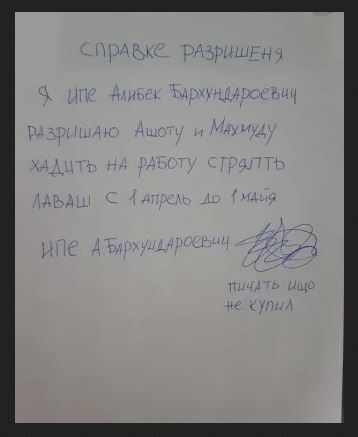 СПРАВКЕ РАЗРИШЕНЯ
Я ИПЕ Алибек Бархундароевич
РАЗРИШАЮ Ашоту и Махмуду
ХАДИТЬ НА РАБОТУ СТРЯПТЬ
ЛАВАШ. С 1 Апрель до 1 майя
ИПЕ А.Бархундароевич
ПИЧАТЬ ИЩО
НЕ КУПИЛ